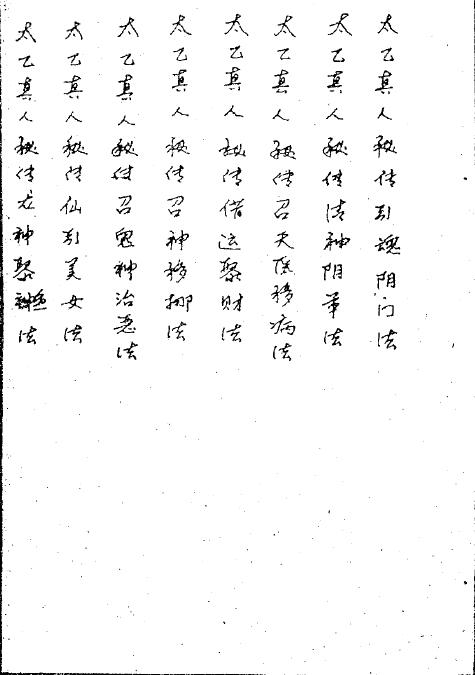 太乙真人秘传引魂阴门法
太乙真人秘传请神阴算法
太乙真人秘传召天医移病法
太乙真人秘传借运聚财法
太乙真人秘传召神移挪法
太乙真人秘传召鬼神治恶法
太乙真人秘传仙引美女法
太乙真人秘传龙神聚法